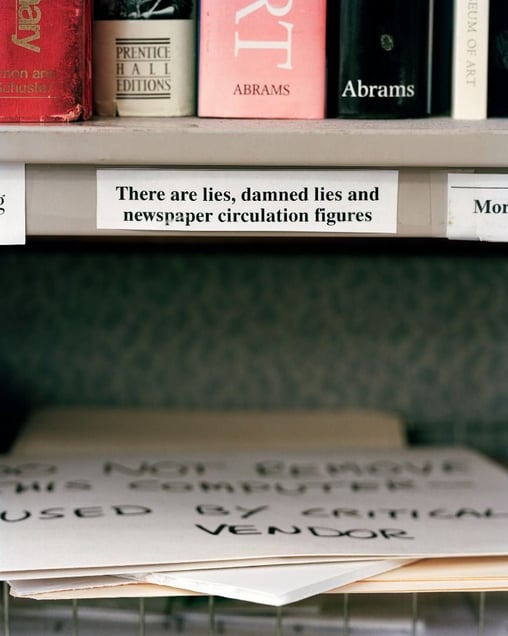 ary
mon and
Schuster
PRENTICE
HALL
EDITIONS
RT
ABRAMS
Abrams
EUM OF ART
g
There are lies, damned lies and
newspaper circulation figures
Mor
DO NOT REMOVE
THIS COMPUTER-
USED BY CRITICAL
VENDOR